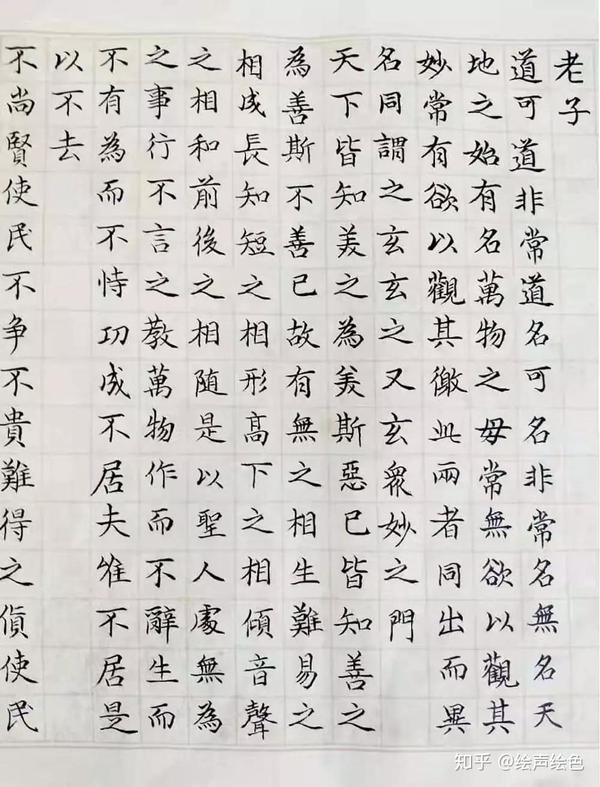 老子
道可道非常道名可名非常名無名天
地之始有名萬物之母常無欲以觀其
妙常有欲以觀其徼此兩者同出而異
名同謂之玄玄之又玄眾妙之門
天下皆知美之為美斯惡已皆知善之
為善斯不善已故有無之相生難易之
相成長知短之相形高下之相傾音聲
之相和前後之相随是以聖人處無為
之事行不言之教萬物作而不辭生而
不有為而不恃功成不居夫唯不居是
以不去
不尚賢使民不争不貴難得之貨使民
知乎 @绘声绘色